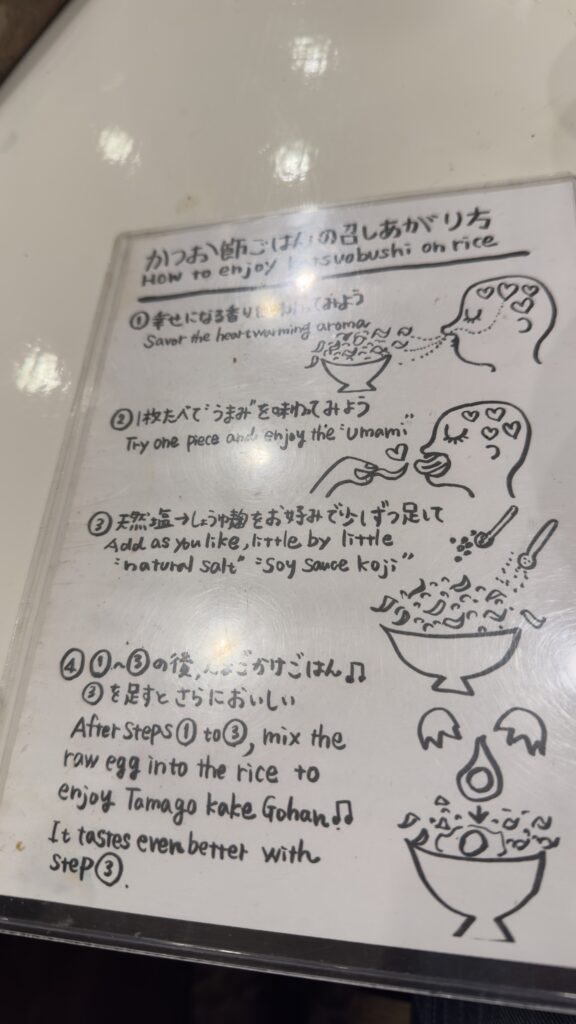 かつお節ごはんの召しあがり方
How to enjoy katsuobushi on rice
①幸せになる香りを味わってみよう
Savor the heartwarming aroma
②1枚たべて"うまみ"を味わってみよう
Try one piece and enjoy the "Umami"
③天然塩→しょうゆ麹をお好みで少しずつ足して
Add as you like, little by little
"natural salt" "Soy sauce koji"
④①～③の後、たまごかけごはん♫
③を足すとさらにおいしい
After steps ① to ③, mix the
raw egg into the rice to
enjoy Tamago kake Gohan♫
It tastes even better with
step ③.